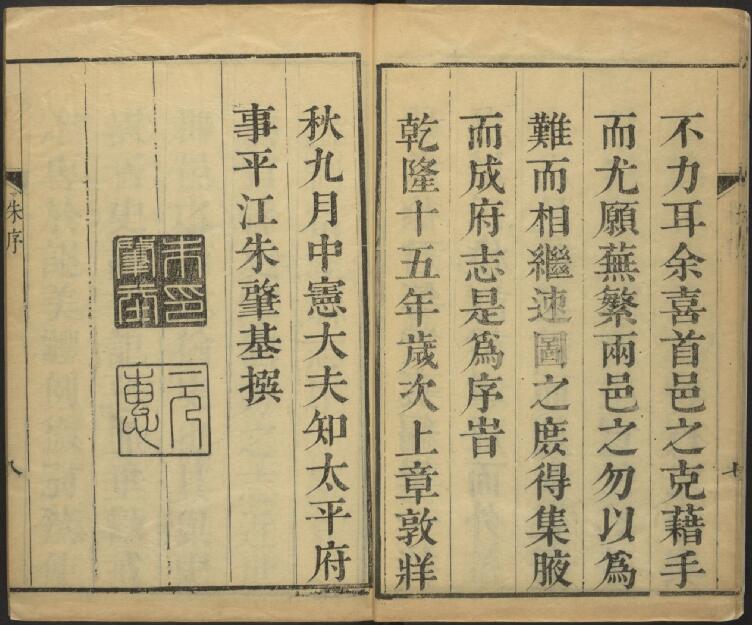 不力耳余喜首邑之克藉手
而尤願蕪繁兩邑之勿以爲
難而相繼速圖之庶得集腋
而成府志是爲序旹
乾隆十五年歲次上章敦牂
秋九月中憲大夫知太平府
事平江朱肇基撰
朱印肇基
元惠
朱序
八